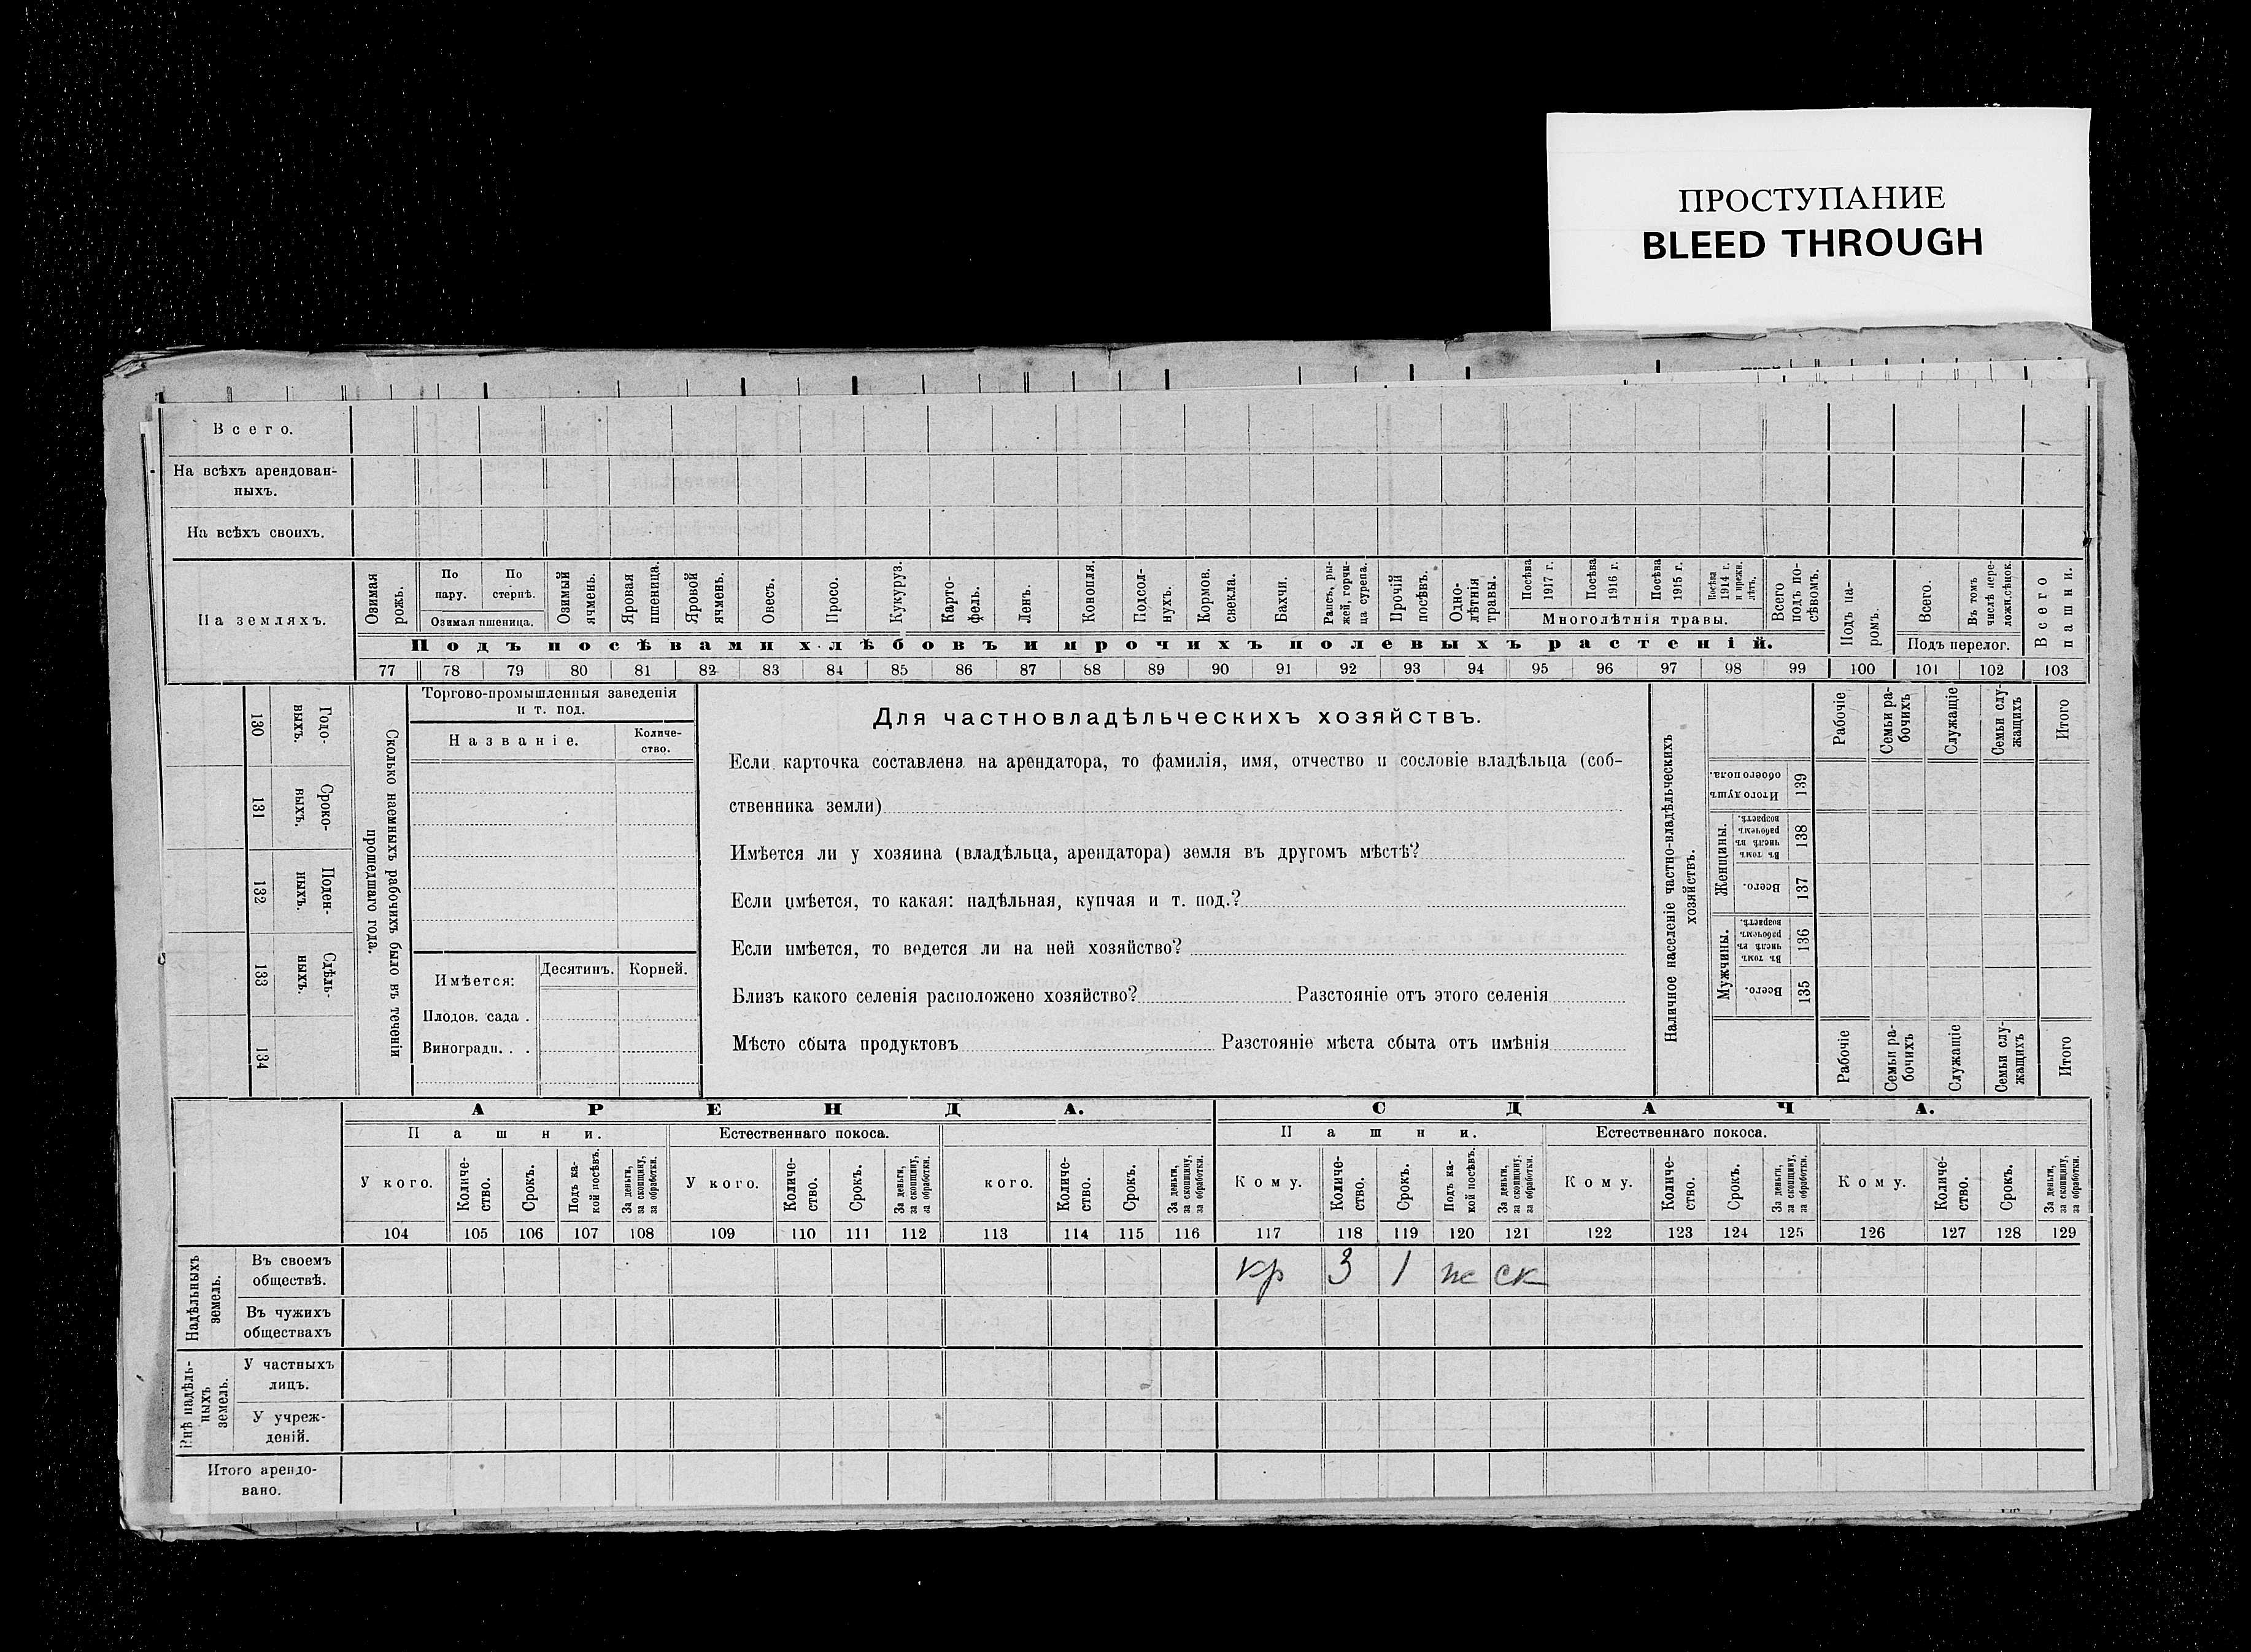 ПРОСТУПАНИЕ
BLEED THROUGH
Всего.
На всѣхъ арендован-
ныхъ.
На всѣхъ своихъ.
На земляхъ.
Озимая рожь.
По пару.
По стернѣ.
Озимая пшеница.
Озимый ячмень.
Яровая пшеница.
Яровой ячмень.
Овесъ.
Просо.
Кукуруз.
Карто-
фель.
Ленъ.
Конопля.
Подсол-
нухъ.
Кормов. свекла.
Бахчи.
Рапсъ, ры-
жей, горчи-
ца сурепа.
Прочій посѣвъ.
Одно-
лѣтнія травы.
Посѣва 1917 г.
Посѣва 1916 г.
Посѣва 1915 г.
Посѣва 1914 г. и прежн. лѣтъ.
Многолѣтнія травы.
Всего подъ по-
сѣвомъ.
Подъ па-
ромъ.
Всего.
Въ томъ числѣ пере-
ложн. сѣнок.
Подъ перелог.
Всего пашни.
Подъ посѣвами хлѣбовъ и прочихъ полевыхъ растеній.
77 78 79 80 81 82 83 84 85 86 87 88 89 90 91 92 93 94 95 96 97 98 99 100 101 102 103
130 Годо-
ныхъ.
131 Сроко-
ныхъ.
132 Поден-
ныхъ.
133 Сдѣль-
ныхъ.
134
Сколько наемныхъ рабочихъ было въ теченіи
прошедшаго года.
Торгово-промышленныя заведенія
и т. под.
Названіе.
Количе-
ство.
Имѣется:
Десятинъ.
Корней.
Плодов. сада .
Виноградн. . .
Для частновладѣльческихъ хозяйствъ.
Если карточка составлена на арендатора, то фамилія, имя, отчество и сословіе владѣльца (соб-
ственника земли)
Имѣется ли у хозяина (владѣльца, арендатора) земля въ другомъ мѣстѣ?
Если имѣется, то какая: надѣльная, купчая и т. под.?
Если имѣется, то ведется ли на ней хозяйство?
Близъ какого селенія расположено хозяйство? Разстояніе отъ этого селенія
Мѣсто сбыта продуктовъ Разстояніе мѣста сбыта отъ имѣнія
Наличное населеніе частно-владѣльческихъ
хозяйствъ.
Рабочіе
Семьи ра-
бочихъ
Служащіе
Семьи слу-
жащихъ
Итого
Итого душъ обоего пола. 139
Женщины.
Въ томъ числѣ въ рабочемъ возрастѣ. 138
Всего. 137
Мужчины.
Въ томъ числѣ въ рабочемъ возрастѣ. 136
Всего. 135
Рабочіе
Семьи ра-
бочихъ
Служащіе
Семьи слу-
жащихъ
Итого
АРЕНДА.
СДАЧА.
Пашни.
Естественнаго покоса.
Пашни.
Естественнаго покоса.
У кого.
Количе-
ство.
Срокъ.
Подъ ка-
кой посѣвъ.
За деньги, за скопщину, за обработки.
У кого.
Количе-
ство.
Срокъ.
За деньги, за скопщину, за обработки.
кого.
Количе-
ство.
Срокъ.
За деньги, за скопщину, за обработки.
Кому.
Количе-
ство.
Срокъ.
Подъ ка-
кой посѣвъ.
За деньги, за скопщину, за обработки.
Кому.
Количе-
ство.
Срокъ.
За деньги, за скопщину, за обработки.
Кому.
Количе-
ство.
Срокъ.
За деньги, за скопщину, за обработки.
104 105 106 107 108 109 110 111 112 113 114 115 116 117 118 119 120 121 122 123 124 125 126 127 128 129
Надѣльныхъ земель.
Въ своемъ
обществѣ.
кр 3 1 ск
Въ чужихъ
обществахъ
Внѣ надѣль-
ныхъ земель.
У частныхъ
лицъ.
У учреж-
деній.
Итого арендо-
вано.